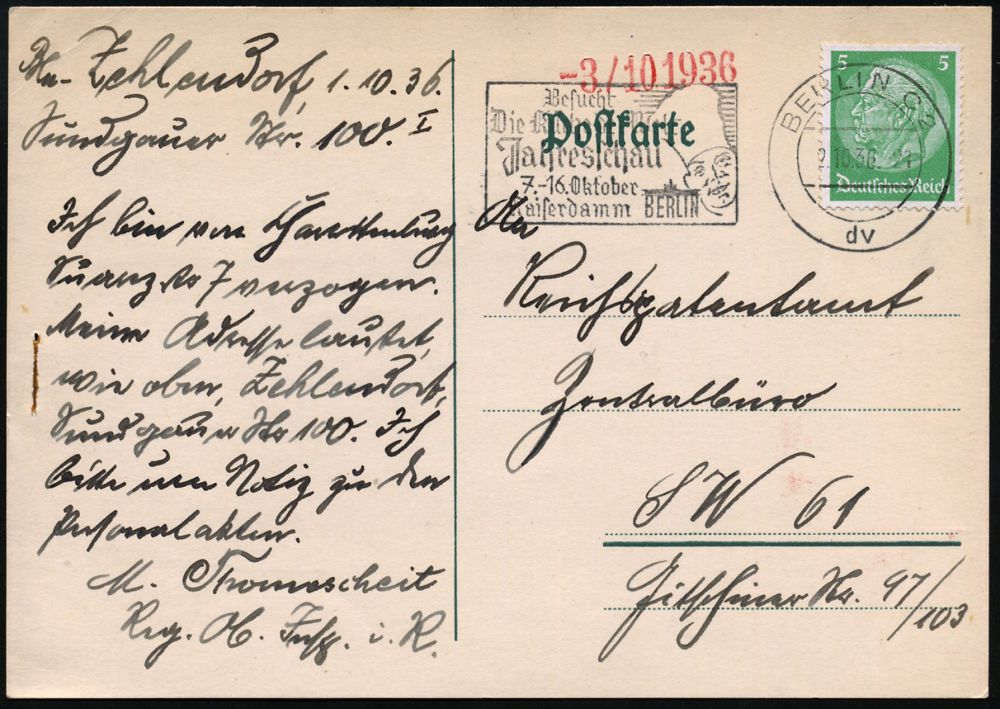 Bln-Zehlendorf, 1.10.36.
Sundgauer Str. 100. I
Ich bin von Charlottenburg
Suarezstr 7 verzogen.
Meine Adresse lautet,
wie oben, Zehlendorf,
Sundgauer Str 100. Ich
bitte um Notiz zu den
Personalakten.
M. Thomascheit
Reg. Ob. Insp. i. R.
-3/10 1936
Postkarte
Besucht
Die
Jahresschau
7.-16. Oktober
Kaiserdamm BERLIN
BERLIN C2
2.10.36
dv
5 5
Deutsches Reich
An
Reichspatentamt
Zentralbüro
SW 61
Gitschiner Str. 97/103